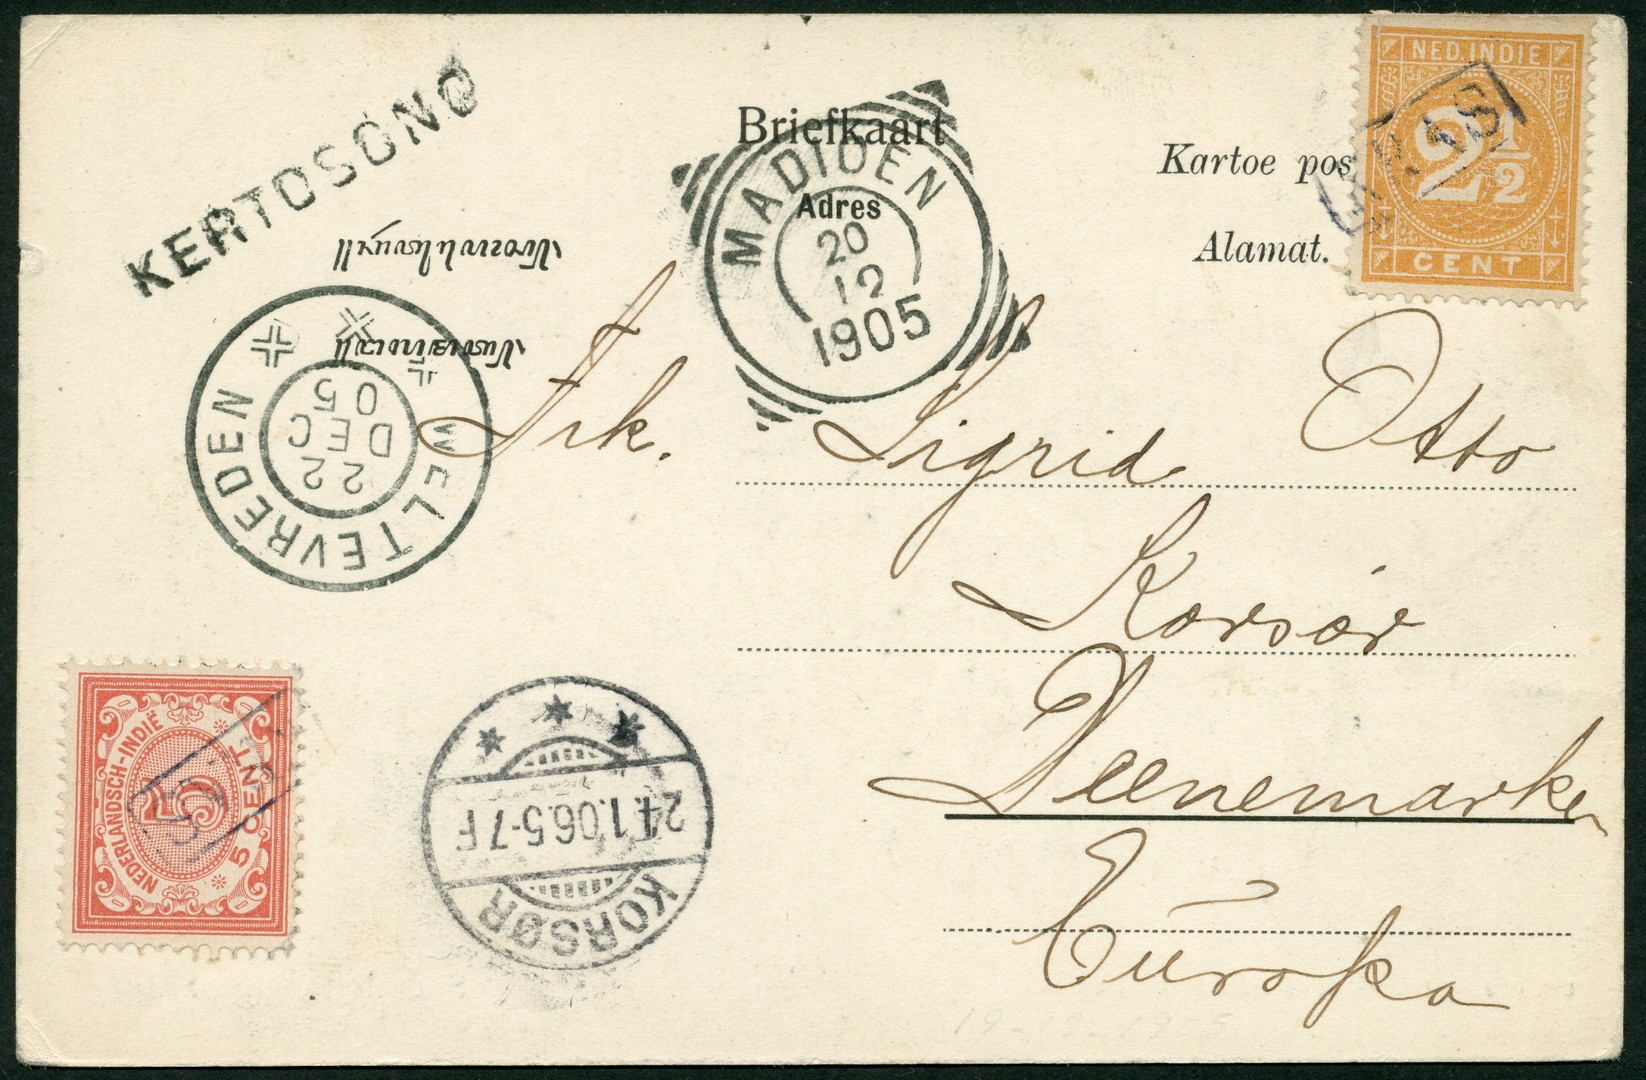 KERTOSONO
Briefkaart
Adres
MADIOEN
20
12
1905
Kartoe pos
Alamat.
NED. INDIE
2 1/2
CENT
WELTEVREDEN
22
DEC
05
Frk. Sigrid Otto
Korsör
Denemarken
Európa
NEDERLANDSCH-INDIË
5
5 CENT
24.1.06.5-7F
KORSØR
19-12-1905